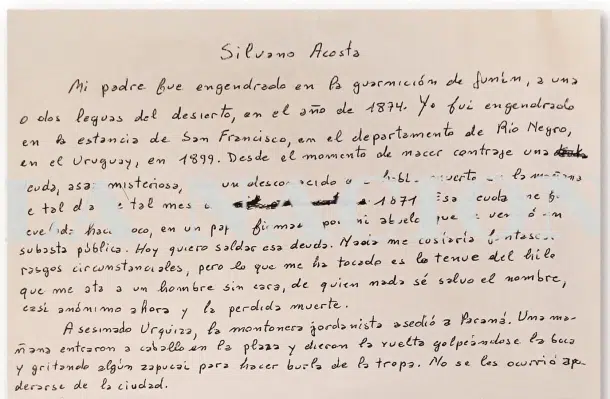 Silvano Acosta
Mi padre fue engendrado en la guarnición de Junín, a una
o dos leguas del desierto, en el año de 1874. Yo fui engendrado
en la estancia de San Francisco, en el departamento de Río Negro,
en el Uruguay, en 1899. Desde el momento de nacer contraje una
euda, asaz misteriosa, un desconocido muerto la mañana
e tal d e tal mes 1871 Esa euda me
en un pap firmad por mi abuelo que
subasta pública. Hoy quiero saldar esa deuda. Nada me costaría
rasgos circunstanciales, pero lo que me ha tocado es lo tenue del hilo
que me ata a un hombre sin cara, de quien nada sé salvo el nombre,
casi anónimo ahora y la perdida muerte.
Asesinado Urquiza, la montonera jordanista asedió a Paraná. Una ma-
ñana entraron a caballo en la plaza y dieron la vuelta golpeándose la boca
y gritando algún zapucai para hacer burla de la tropa. No se les ocurrió apo
derarse de la ciudad.